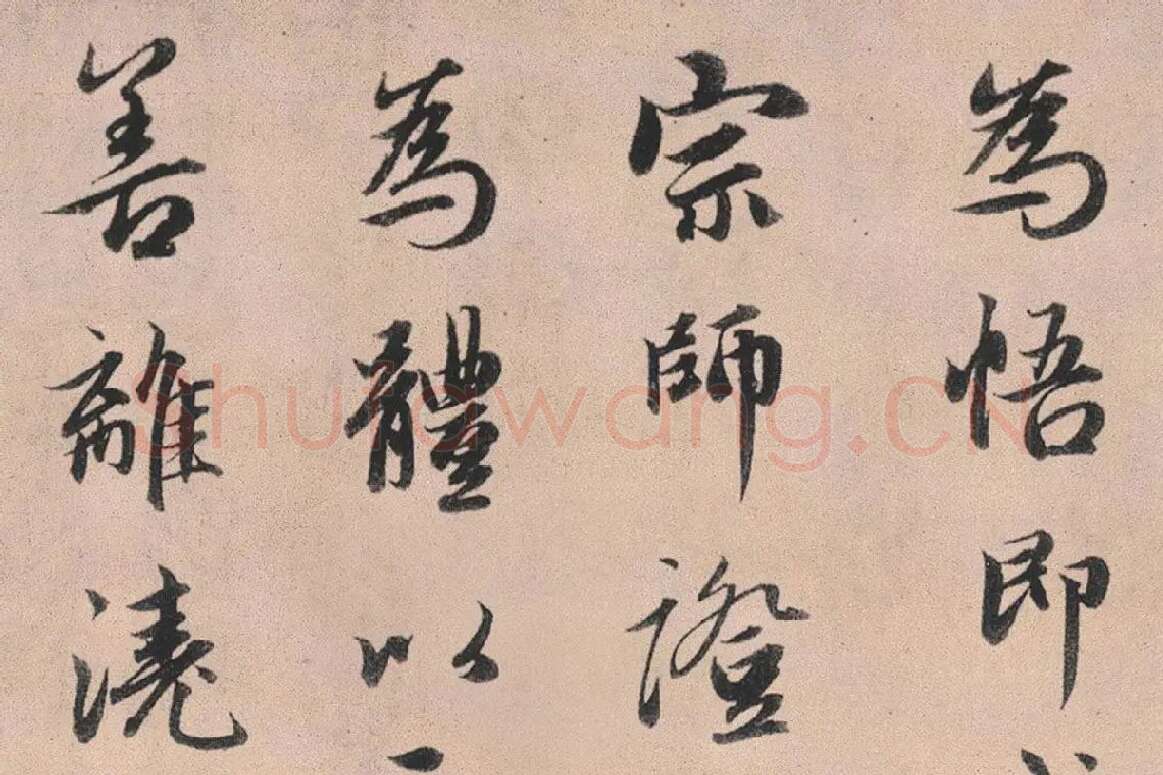 為悟即
宗師證
為體以
善離澆
Shufawang.CN